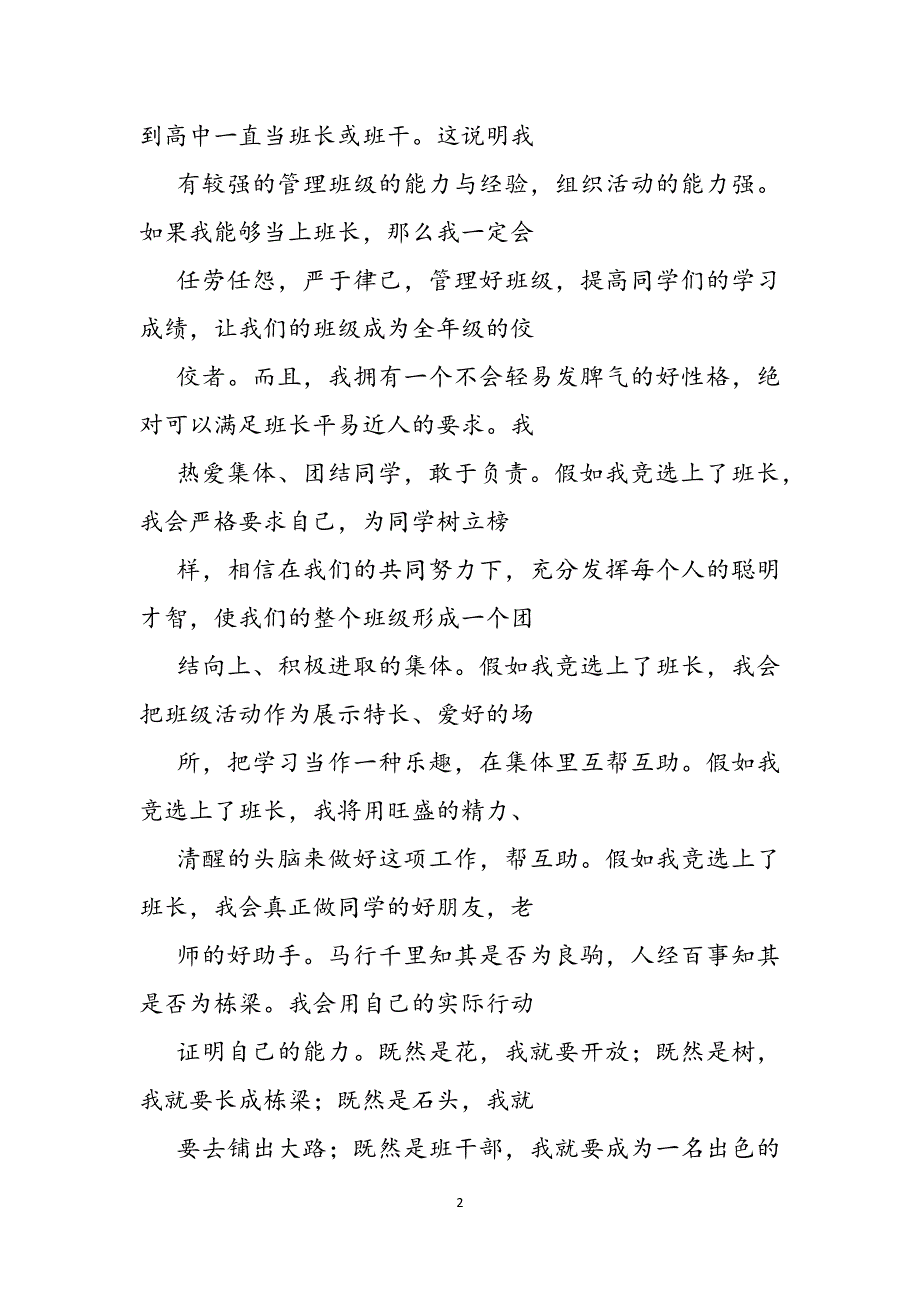 到高中一直当班长或班干。这说明我
有较强的管理班级的能力与经验，组织活动的能力强。
如果我能够当上班长，那么我一定会
任劳任怨，严于律己，管理好班级，提高同学们的学习
成绩，让我们的班级成为全年级的佼
佼者。而且，我拥有一个不会轻易发脾气的好性格，绝
对可以满足班长平易近人的要求。我
热爱集体、团结同学，敢于负责。假如我竞选上了班长，
我会严格要求自己，为同学树立榜
样，相信在我们的共同努力下，充分发挥每个人的聪明
才智，使我们的整个班级形成一个团
结向上、积极进取的集体。假如我竞选上了班长，我会
把班级活动作为展示特长、爱好的场
所，把学习当作一种乐趣，在集体里互帮互助。假如我
竞选上了班长，我将用旺盛的精力、
清醒的头脑来做好这项工作，帮互助。假如我竞选上了
班长，我会真正做同学的好朋友，老
师的好助手。马行千里知其是否为良驹，人经百事知其
是否为栋梁。我会用自己的实际行动
证明自己的能力。既然是花，我就要开放；既然是树，
我就要长成栋梁；既然是石头，我就
要去铺出大路；既然是班干部，我就要成为一名出色的
2